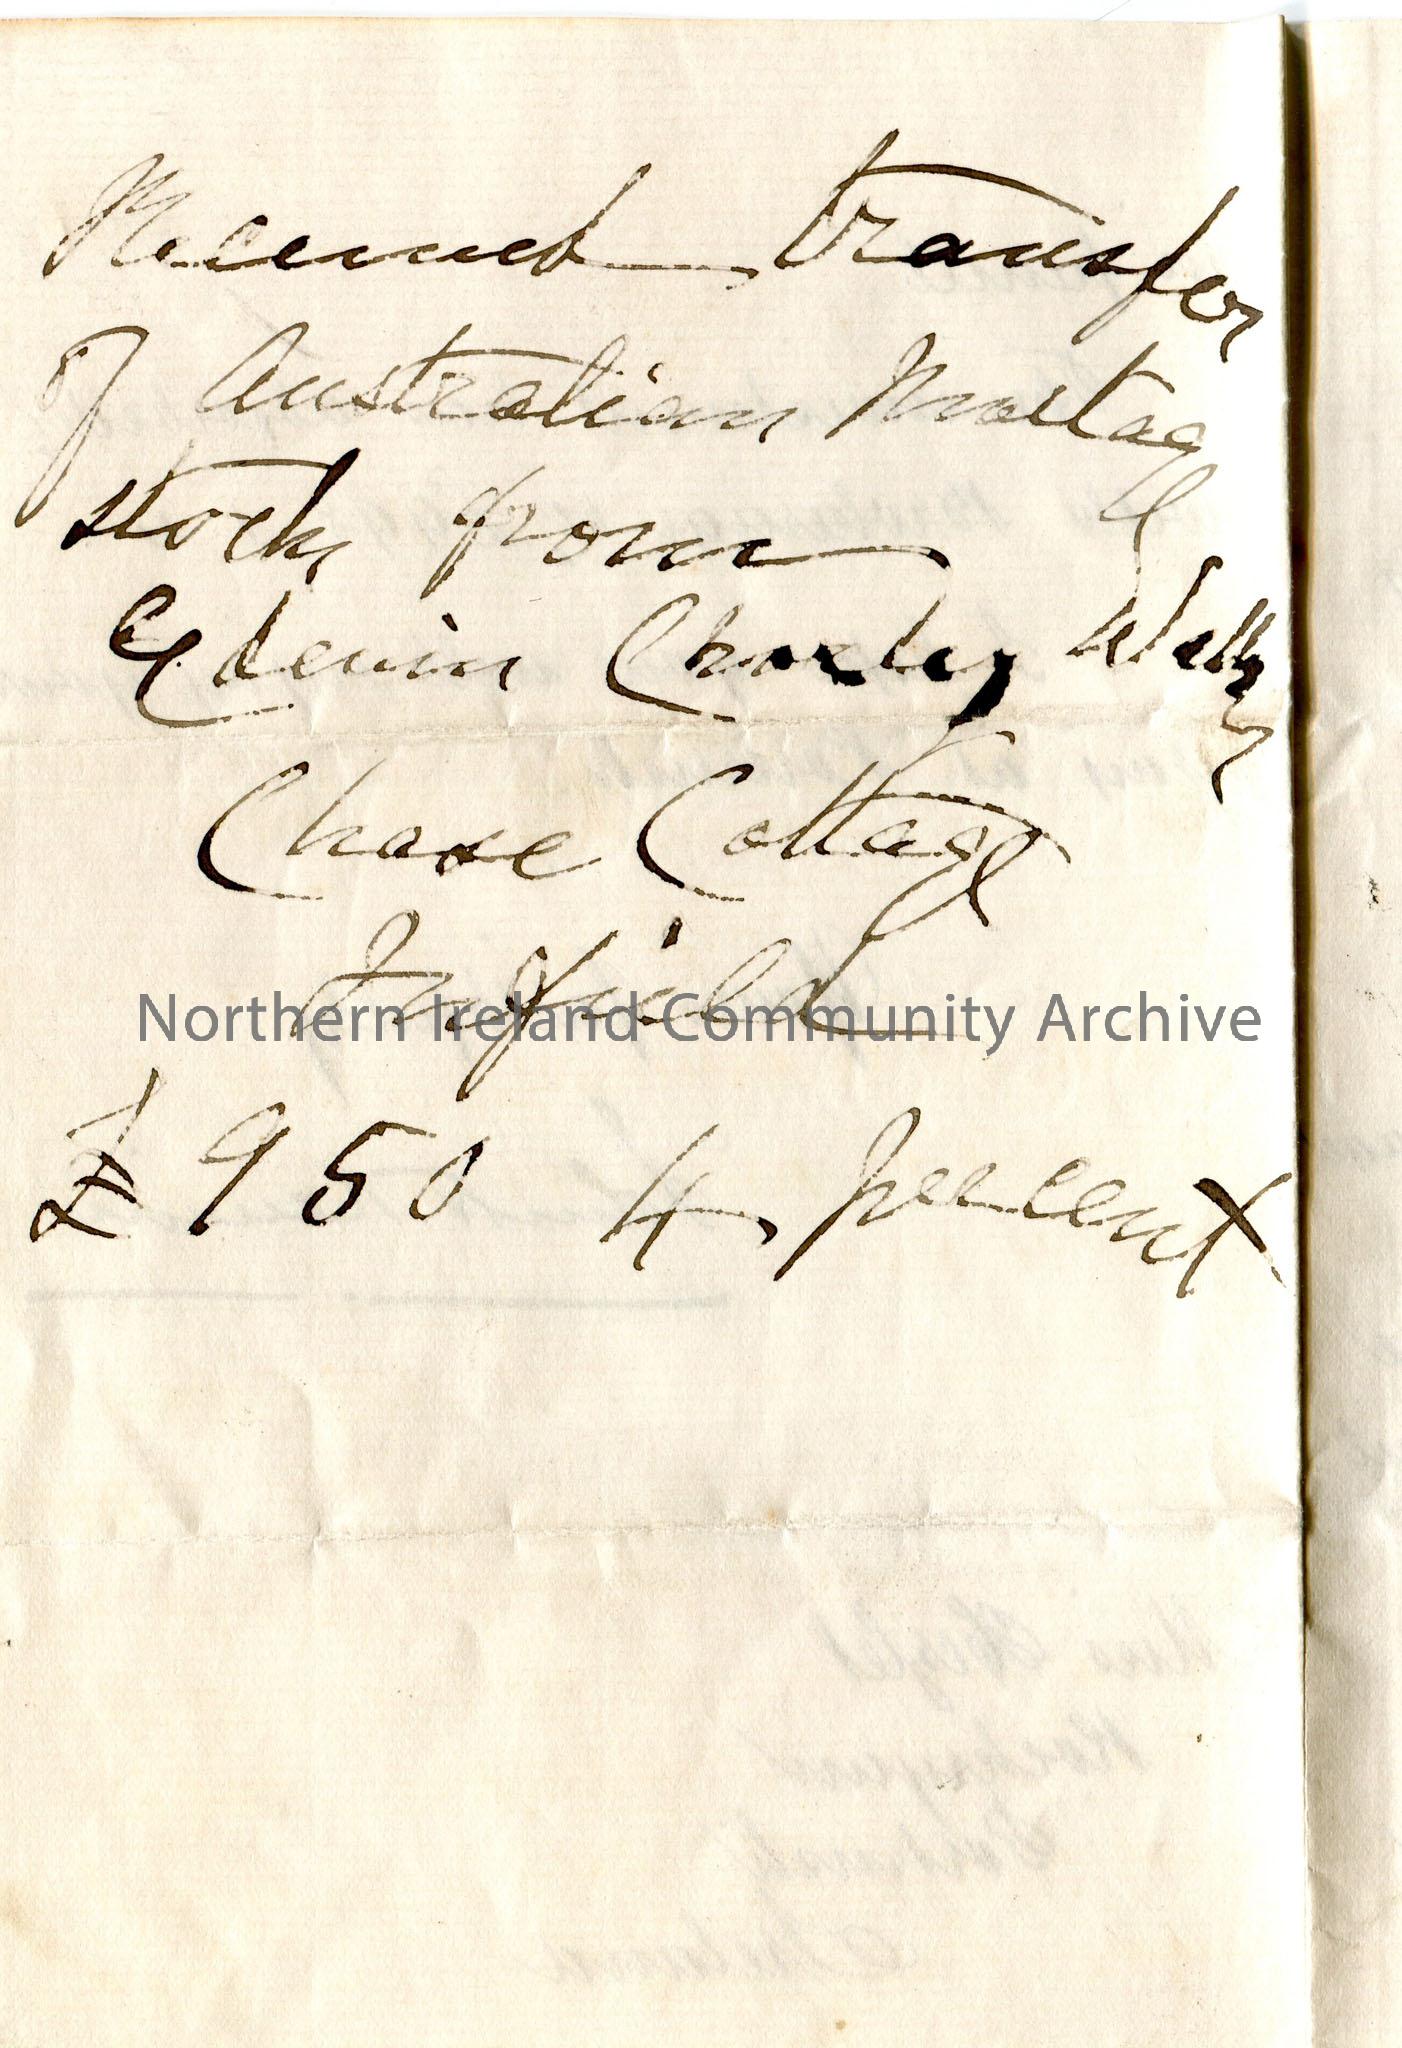 Received transfer
of Australian Mortag
stock from
Edwin Charles Wells
Chase Cottage
Enfield
Northern Ireland Community Archive
£950 4 percent